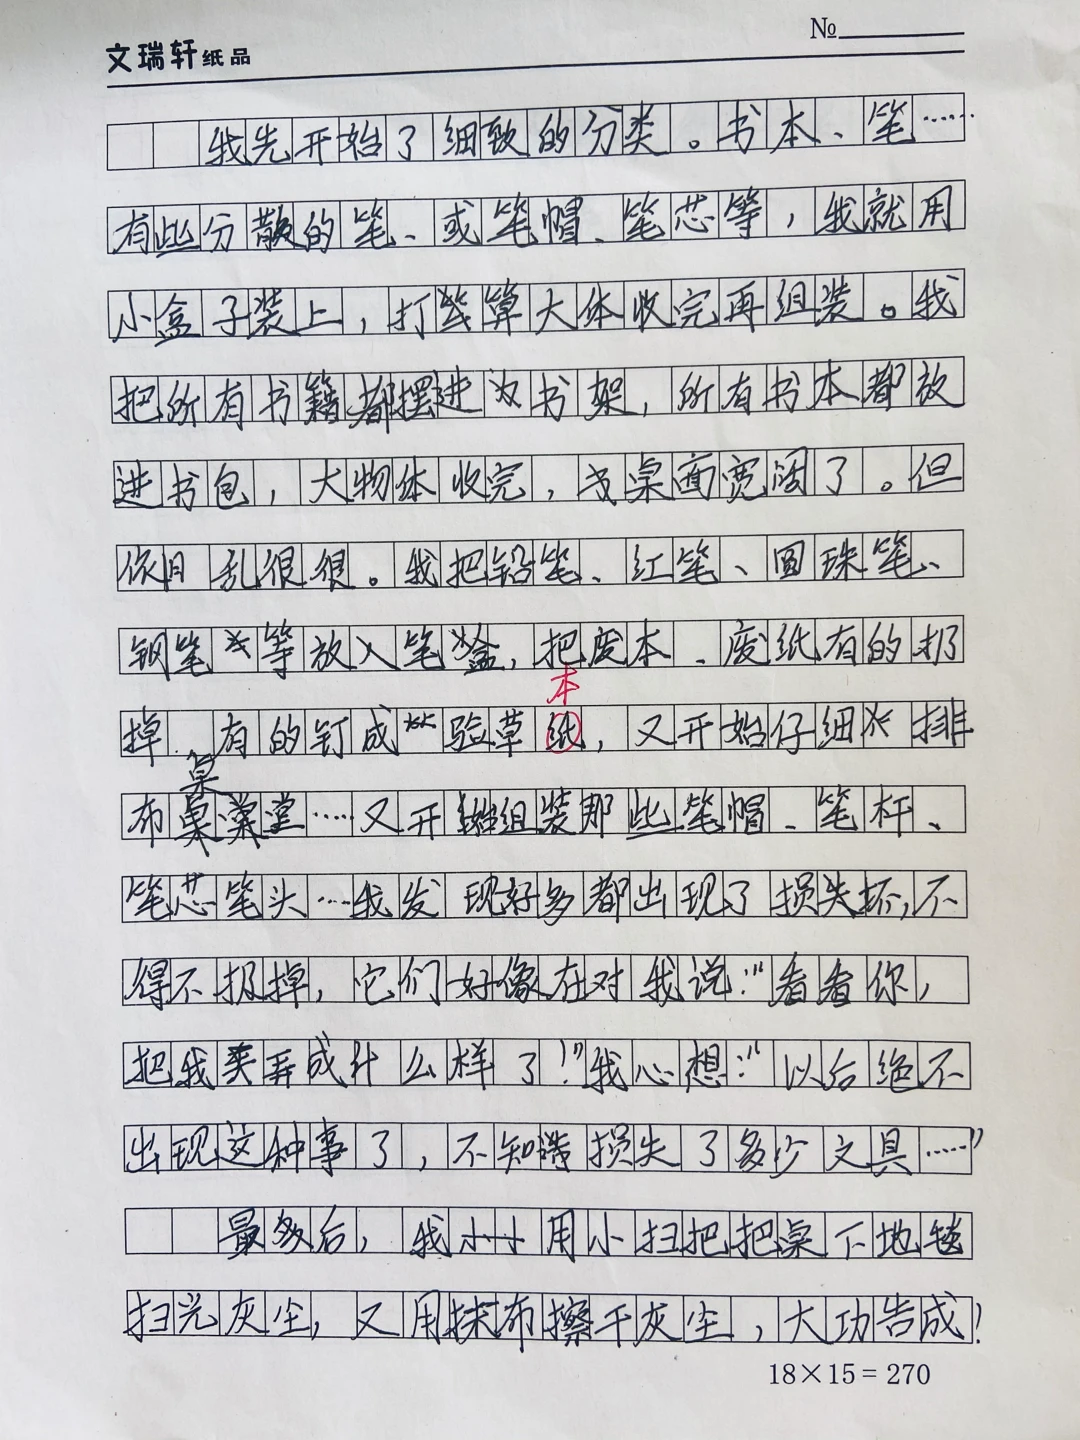 №
文瑞轩纸品
我先开始了细致的分类。书本、笔……
有些分散的笔、或笔帽、笔芯等，我就用
小盒子装上，打算大体收完再组装。我
把所有书籍都摆进书架，所有书本都放
进书包，大物体收完，书桌面宽阔了。但
依旧乱很很。我把铅笔、红笔、圆珠笔、
钢笔等放入笔盒，把废本、废纸有的扔
本
掉、有的钉成验草纸，又开始仔细排
桌
布……又开始组装那些笔帽、笔杆、
笔芯笔头…我发现好多都出现了损失坏，不
得不扔掉，它们好像在对我说：“看看你，
把我弄成什么样了！”我心想：“以后绝不
出现这种事了，不知道损失了多少文具……”
最后，我用小扫把把桌下地毯
扫光灰尘，又用抹布擦干灰尘，大功告成！
18×15=270